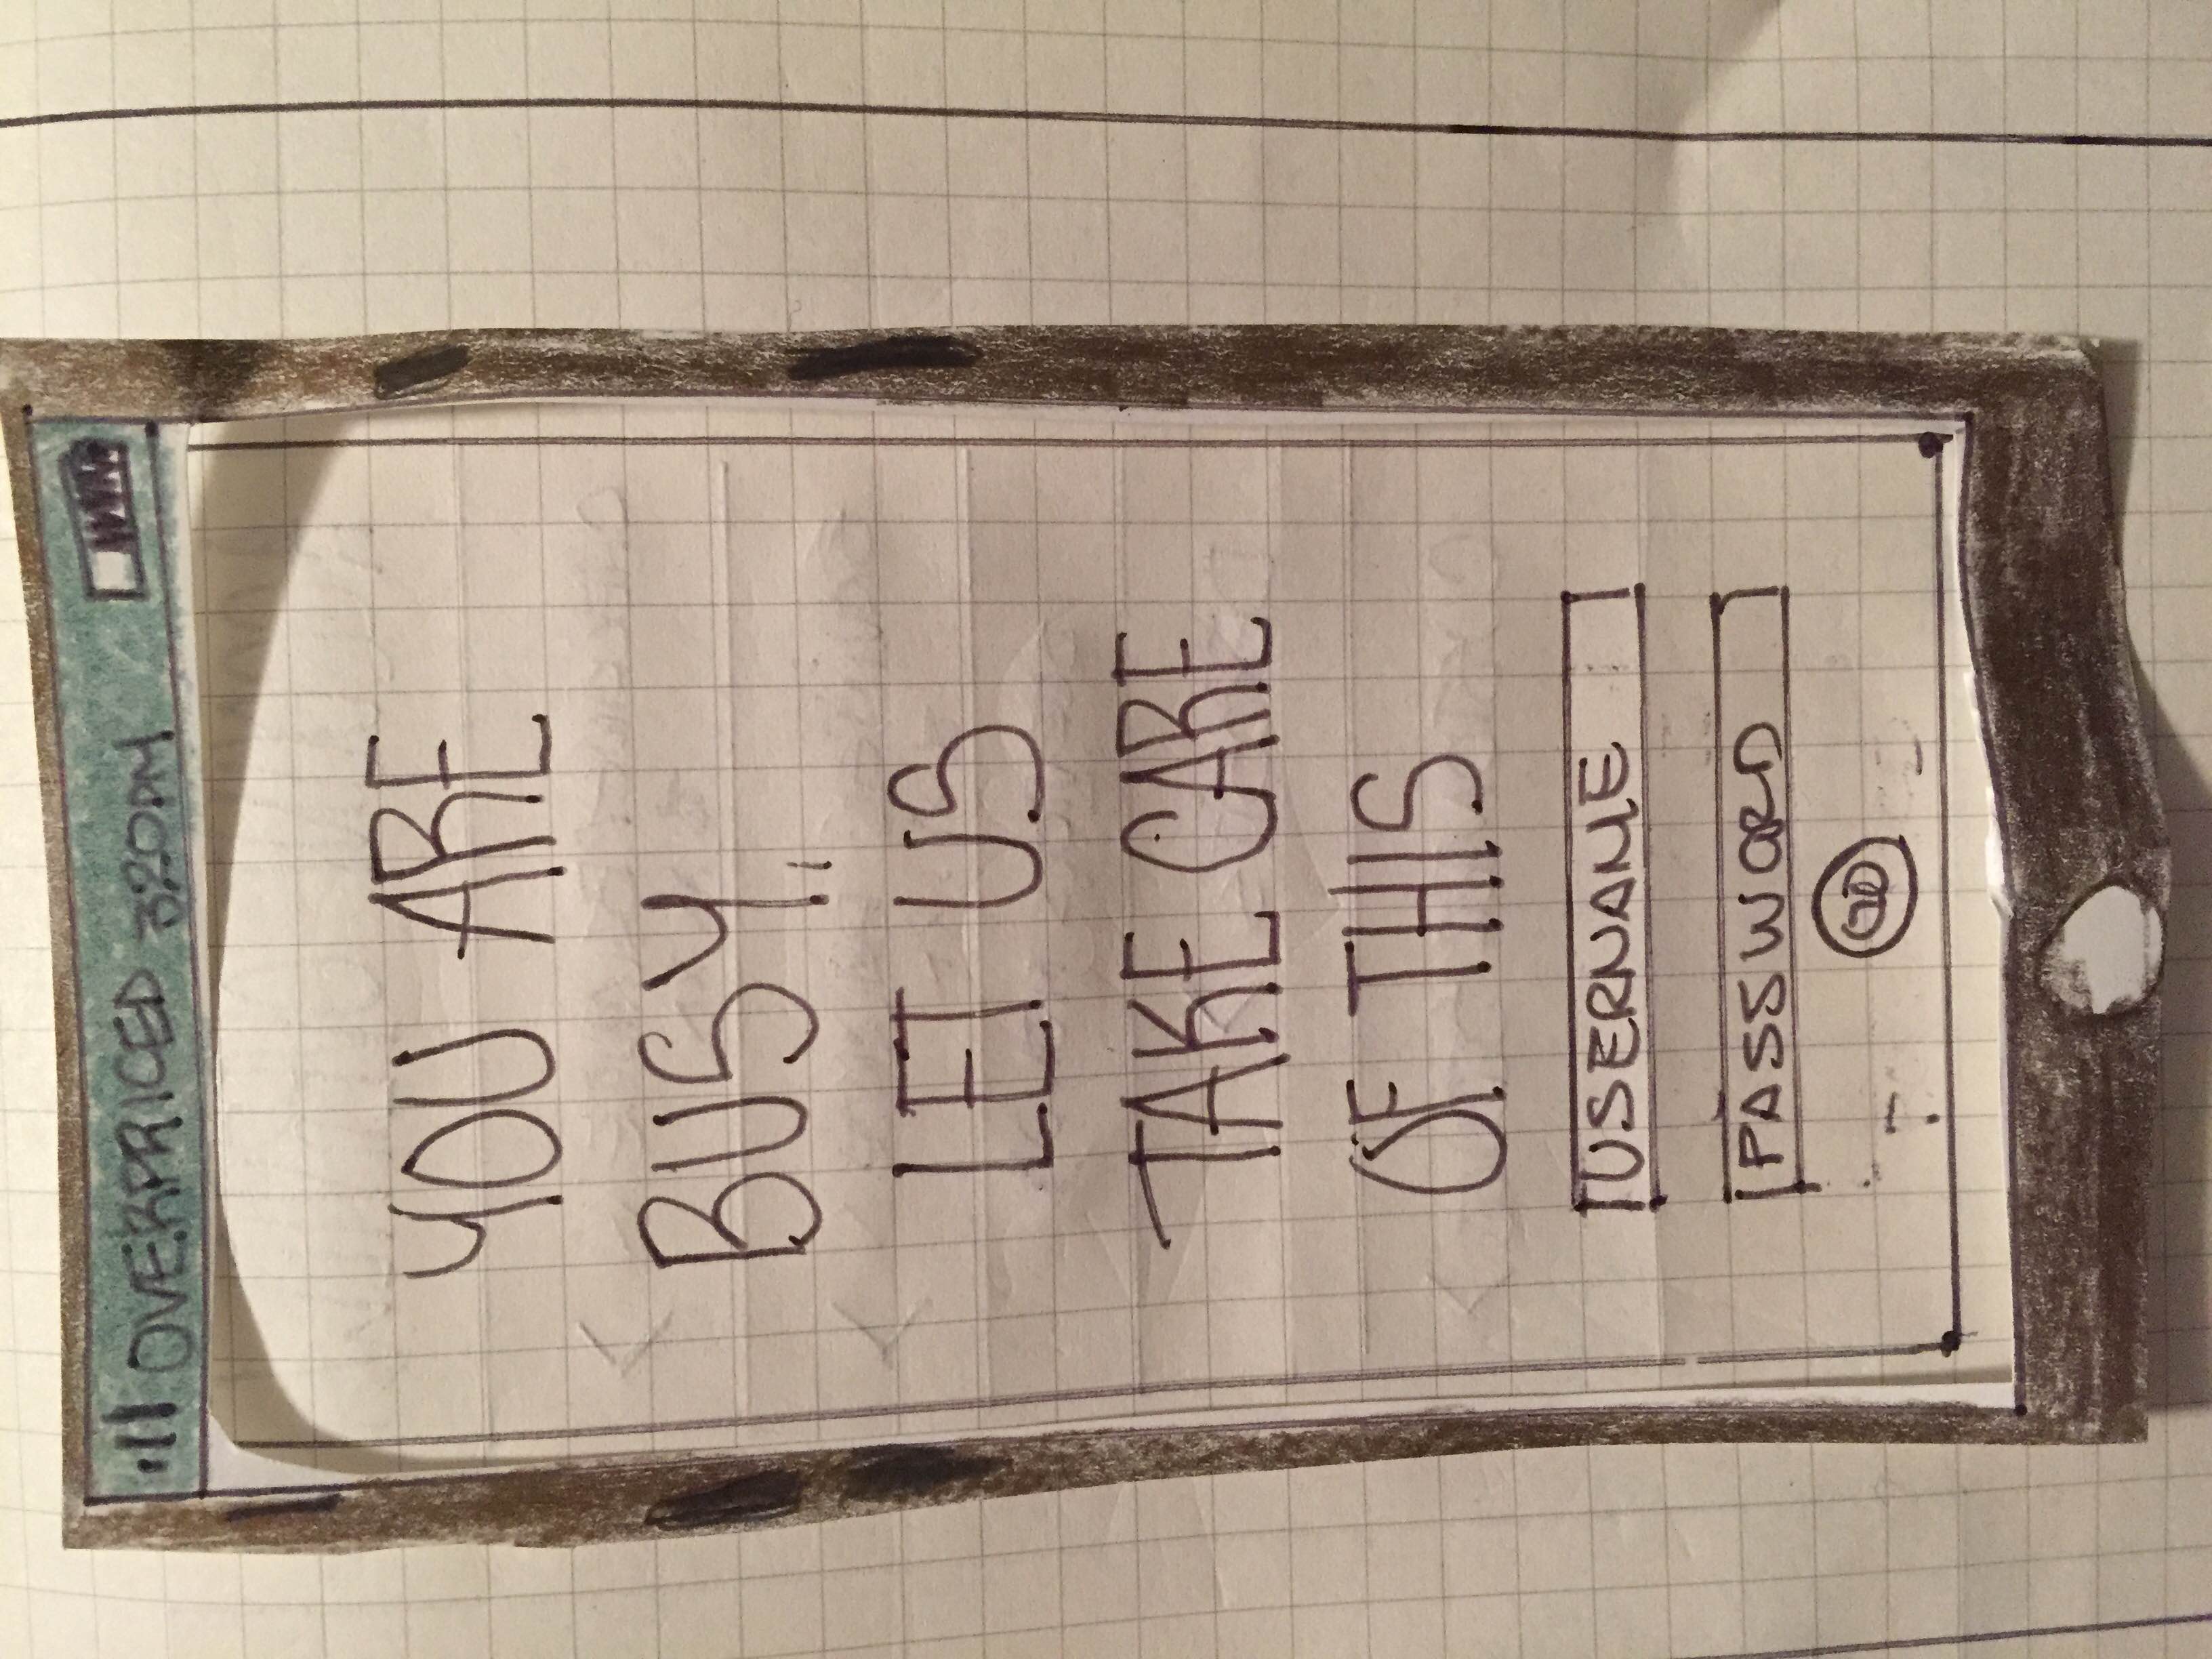 OVERPRICED 320PM
YOU ARE
BUSY,
LET US
TAKE CARE
OF THIS
USERNAME
PASSWORD
GO